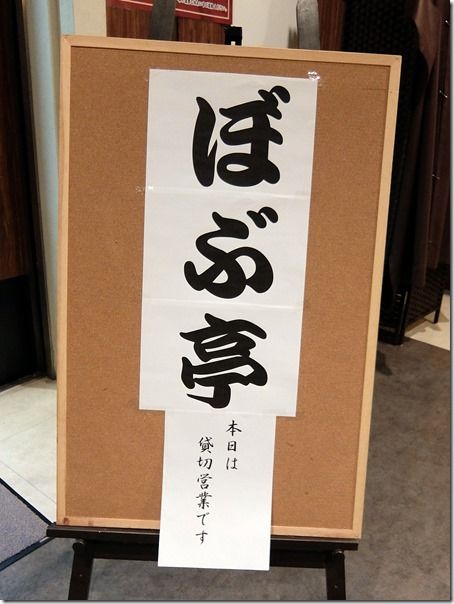 ぼぶ亭
本日は
貸切営業です